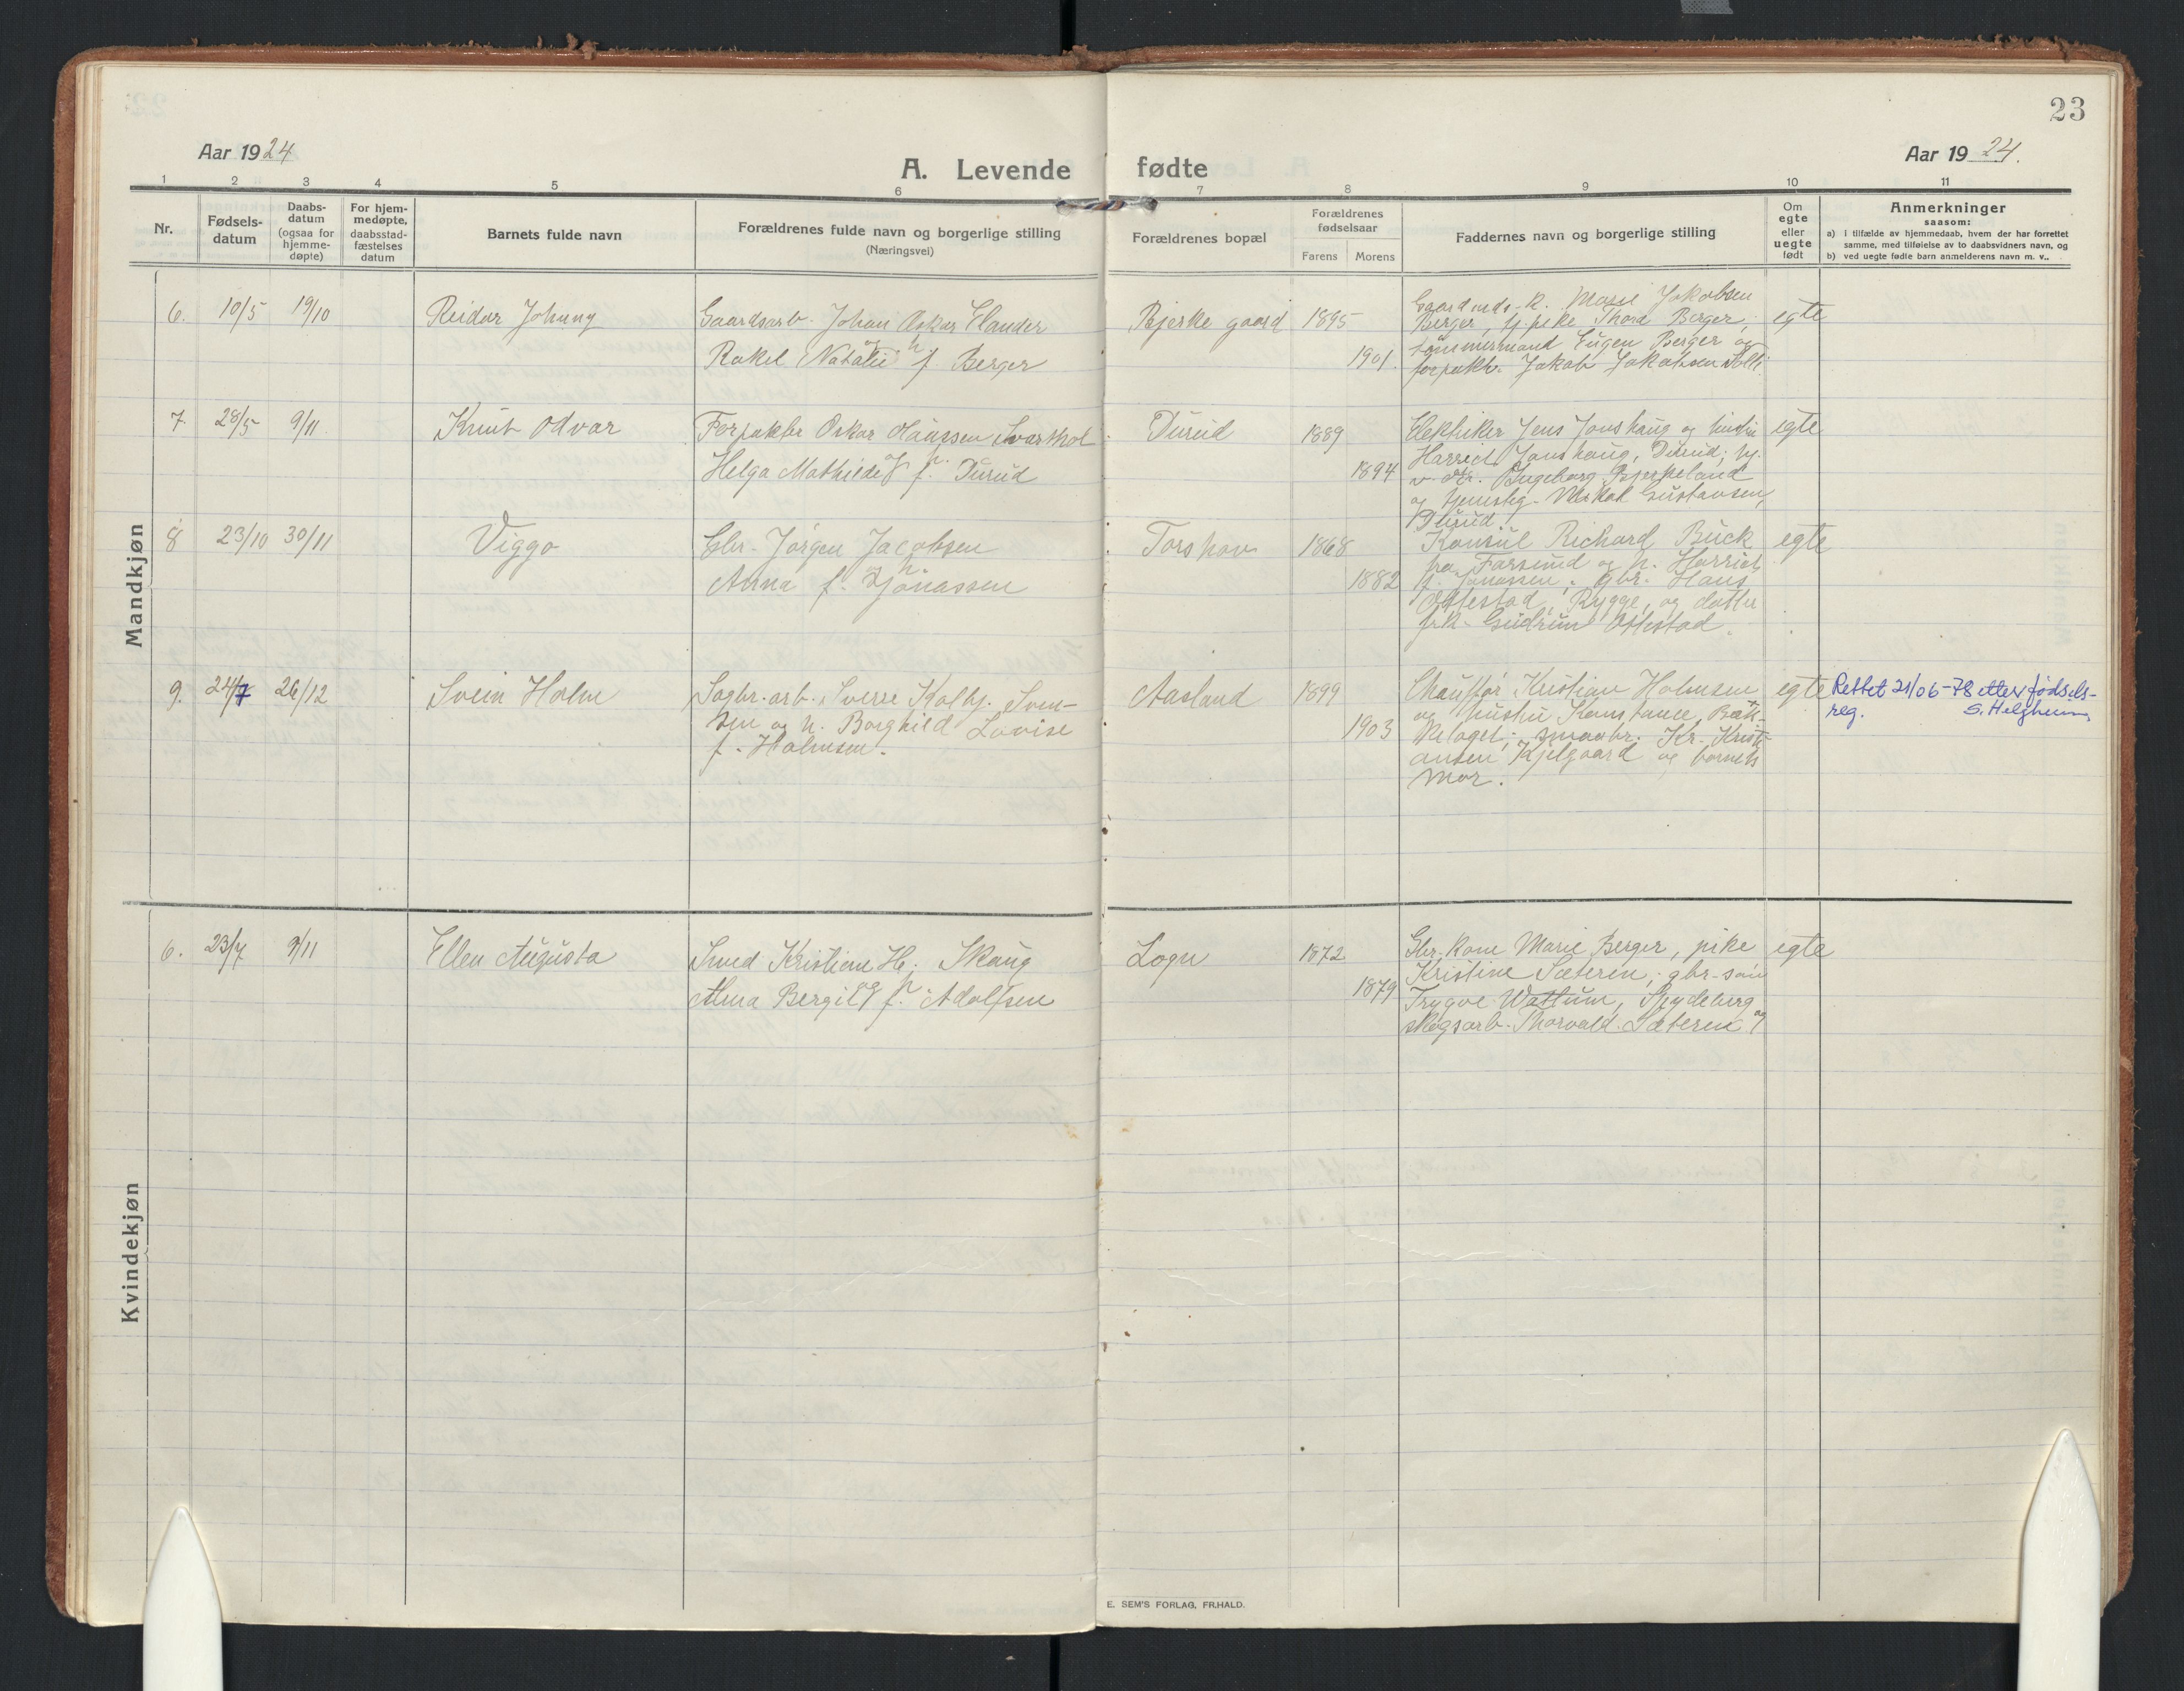 23
Aar 1924
A. Levende fødte
Aar 1924.
1 2 3 4 5 6 7 8 9 10 11
Nr.
Fødsels-
datum
Daabs-
datum
(ogsaa for
hjemme-
døpte)
For hjem-
medøpte,
daabsstad-
fæstelses
datum
Barnets fulde navn
Forældrenes fulde navn og borgerlige stilling
(Næringsvei)
Forældrenes bopæl
Forældrenes
fødselsaar
Farens Morens
Faddernes navn og borgerlige stilling
Om
egte
eller
uegte
født
Anmerkninger
saasom:
a) i tilfælde av hjemmedaab, hvem der har forrettet
samme, med tilføielse av to daabsvidners navn, og
b) ved uegte fødte barn anmelderens navn m. v..
Mandkjøn
6. 10/5 19/10
Reidar Johnny
Gaardsarb. Johan Oskar Elander
og h.
Rakel Natalie f. Berger
Bjerke gaard
1895
1901.
Gaardmds-k. Marie Jakobsen
Berger, hj. pike Thora Berger,
tömmermand Eugen Berger og
forpakt. Jakob Jakobsen Solli.
egte
7. 28/5 9/11
Knut Odvar
Forpakter Oskar Olaussen Svarthol
og h.
Helga Mathilde f. Durud
Durud
1889
1894
Elektriker Jens Jonshaug og hustru
Harriet Jonshaug, Durud; hj.
v. dtr. Ingeborg Bjerkeland
og tjenesteg. Gustavsen,
Durud
egte
8 23/10 30/11
Viggo
Gbr. Jørgen Jacobsen
og h.
Anna f. Jonassen
Torshov
1868
1882
Konsul Richard Buck
fra Farsund og h. Harriet
f. Jonassen; gbr. Hans
Ottestad, Rygge, og datter
frk. Gudrun Ottestad.
egte
9. 24/7 26/12
Svein Holm
Sagbr. arb. Sverre Kolbj. Sven-
sen og h. Borghild Lovise
f. Holmsen.
Aasland
1899
1903
Chauffør Kristian Holmsen
og hustru Konstance, Bæk-
kelaget; smaabr. Kr. Kristi-
ansen Kjelgaard og barnets
mor.
egte
Rettet 21/06-78 etter fødsels-
reg. S. Helgheim
Kvindekjøn
6. 23/7 9/11
Ellen Augusta
Smed Kristian H. Skaug
og h.
Alma Bergit f. Adolfsen
Logn
1872
1879
Gbr. kone Marie Berger, pike
Kristine Sæteren; gbr. søn
Trygve Wattum, Spydeberg og
skogsarb. Thorvald Sæteren
egte
E. SEM'S FORLAG, FR.HALD.